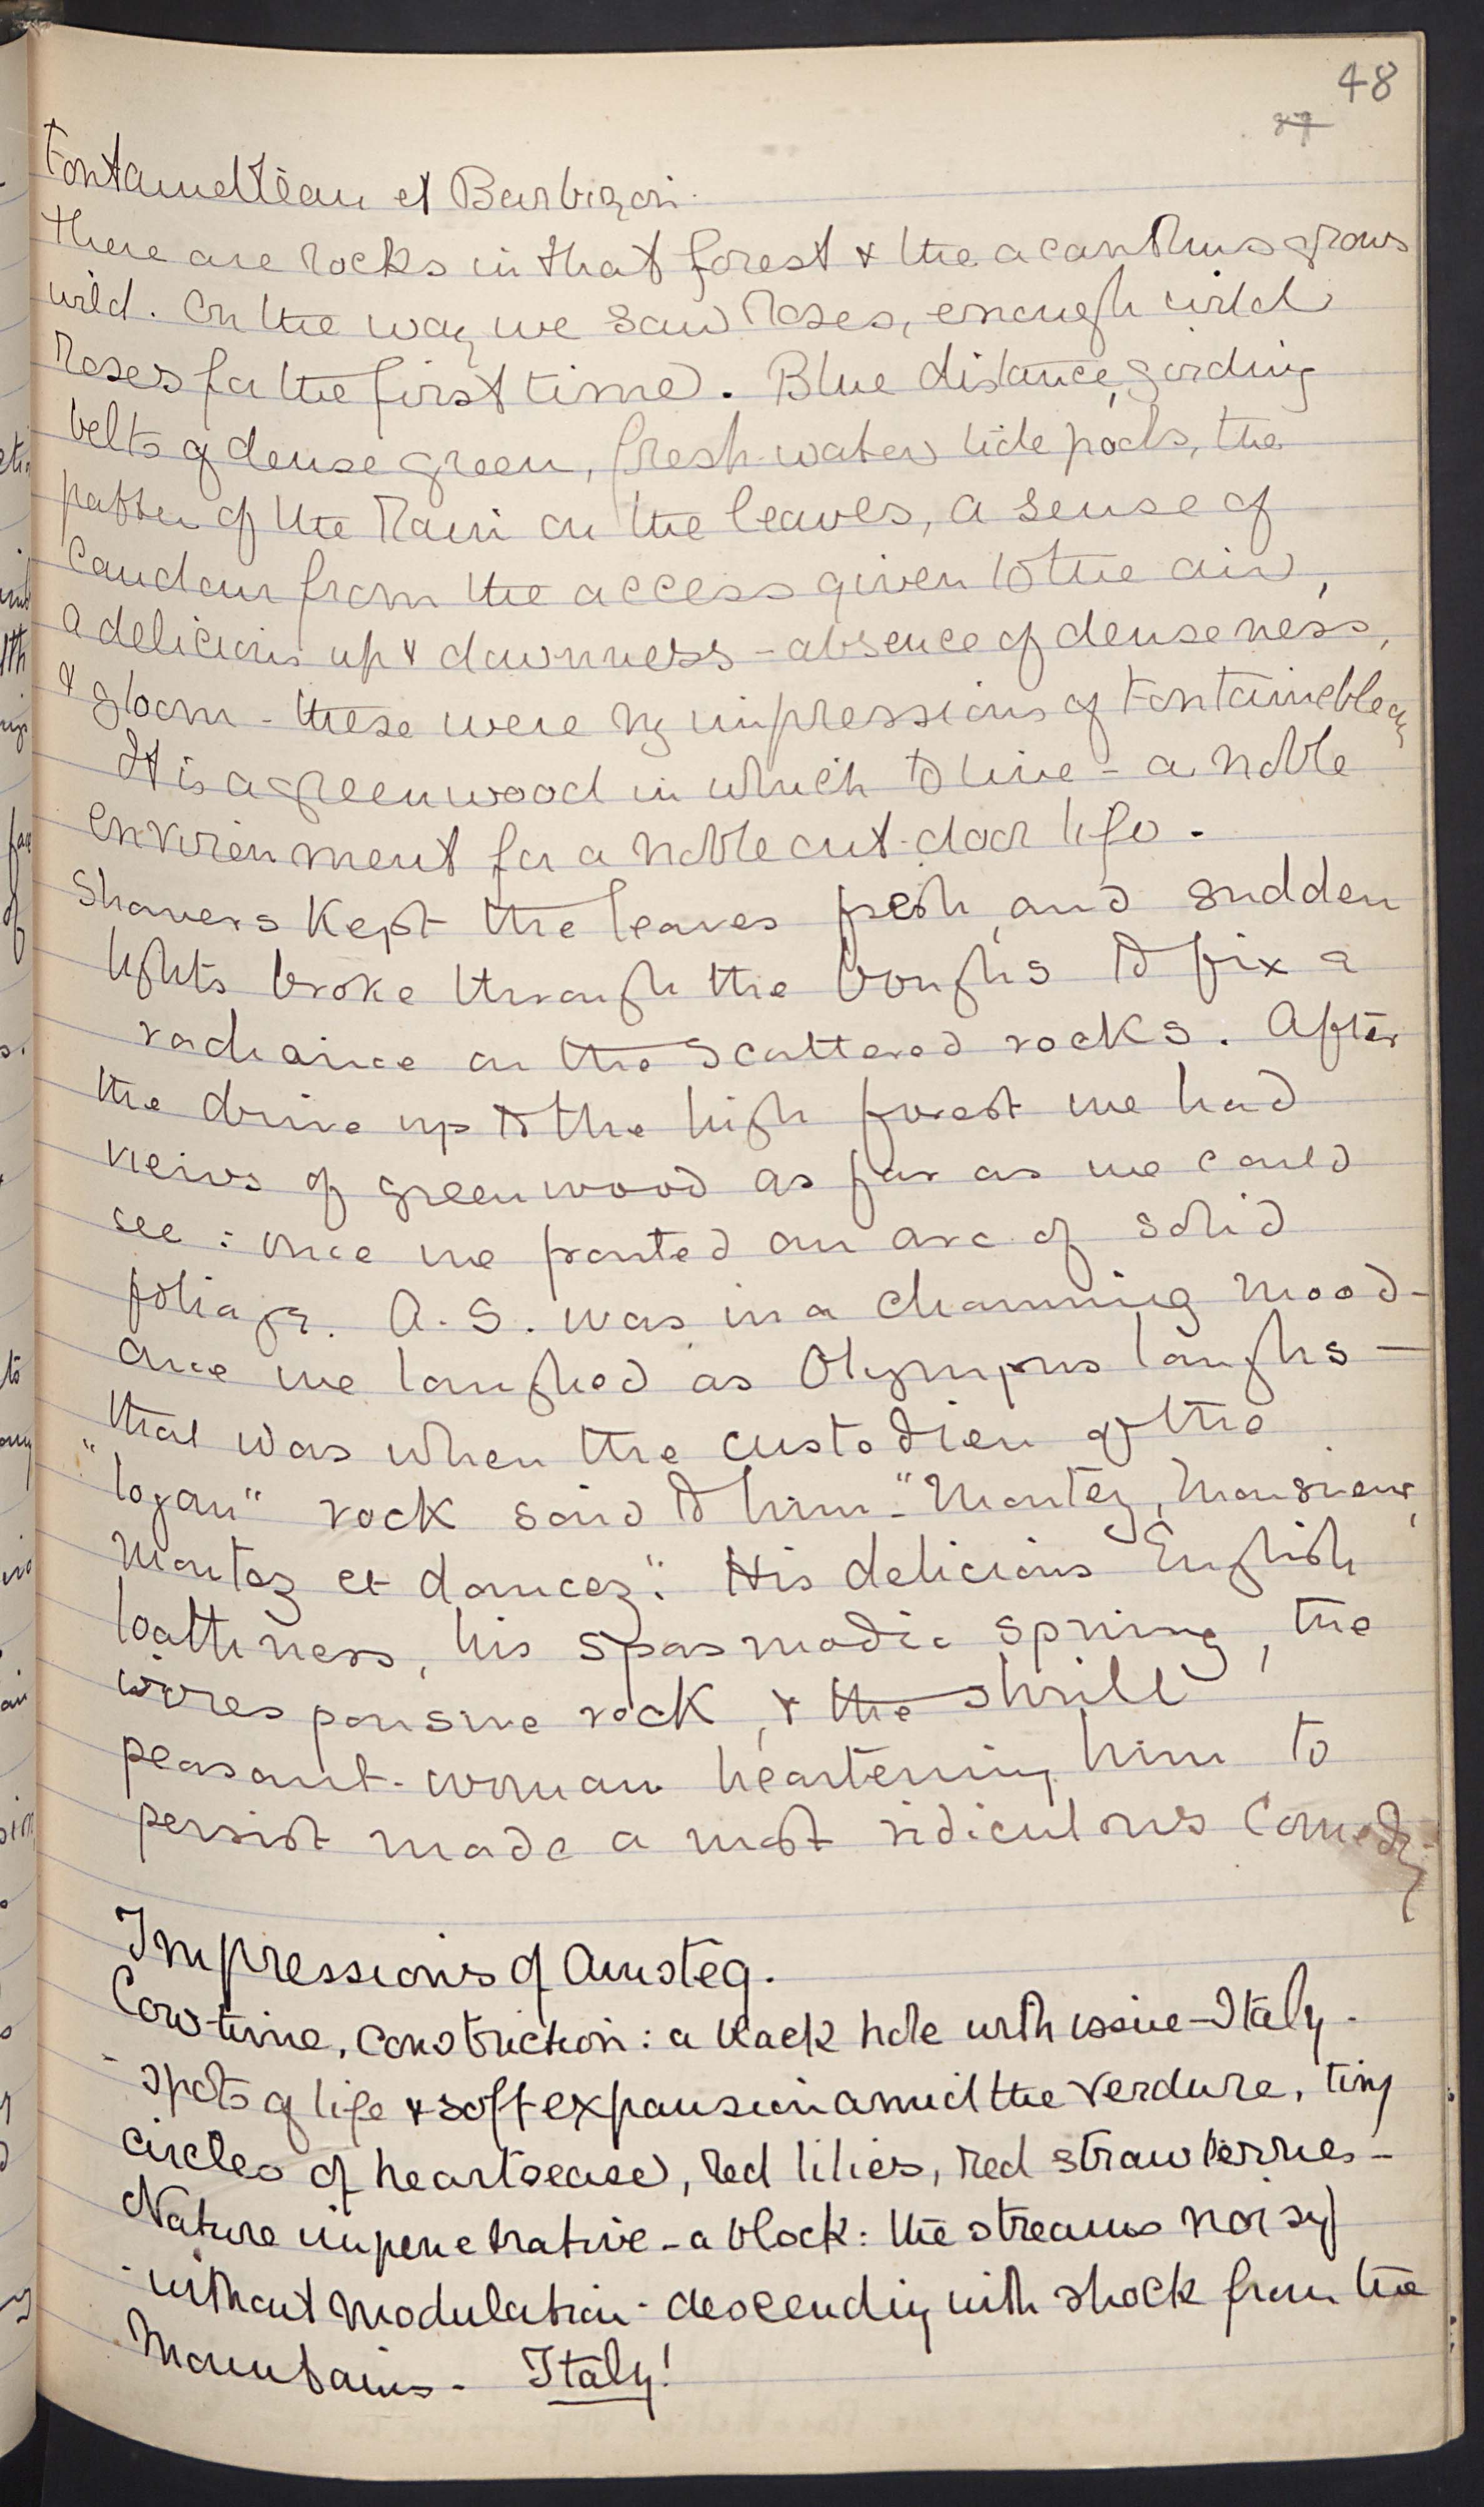 48
Fontainebleau et Barbizon.
There are rocks in that forest & the acanthus grows
wild. On the way we saw roses, enough wild
roses for the first time. Blue distance, girding
belts of dense green, fresh-water tide pools, the
patter of the rain on the leaves, a sense of
candour from the access given to the air,
a delicious up & downness - absence of denseness,
& gloom - these were my impressions of Fontainebleau
It is a greenwood in which to live - a noble
environment for a noble out-door life.
Showers kept the leaves fresh, and sudden
lights broke through the boughs to fix a
radiance on the scattered rocks. After
the drive up to the high forest we had
views of greenwood as far as we could
see : once we fronted an arc of solid
foliage. A. S. was in a charming mood -
once we laughed as Olympus laughs -
that was when the custodien of the
"logan" rock said to him - "Montez, Monsieur,
Montez et dancez". His delicious English
loathness, his spasmodic spring, the
irresponsive rock, & the shrill
peasant-woman heartening him to
persist made a most ridiculous Comedy.
Impressions of Amsteg.
Cow-time, constriction : a black hole with issue - Italy -
Spots of life & soft expansion amid the verdure, tiny
circles of heartsease, red lilies, red strawberries -
Nature impenetrative - a block : the streams noisy
without modulation - descending with shock from the
Mountains - Italy!